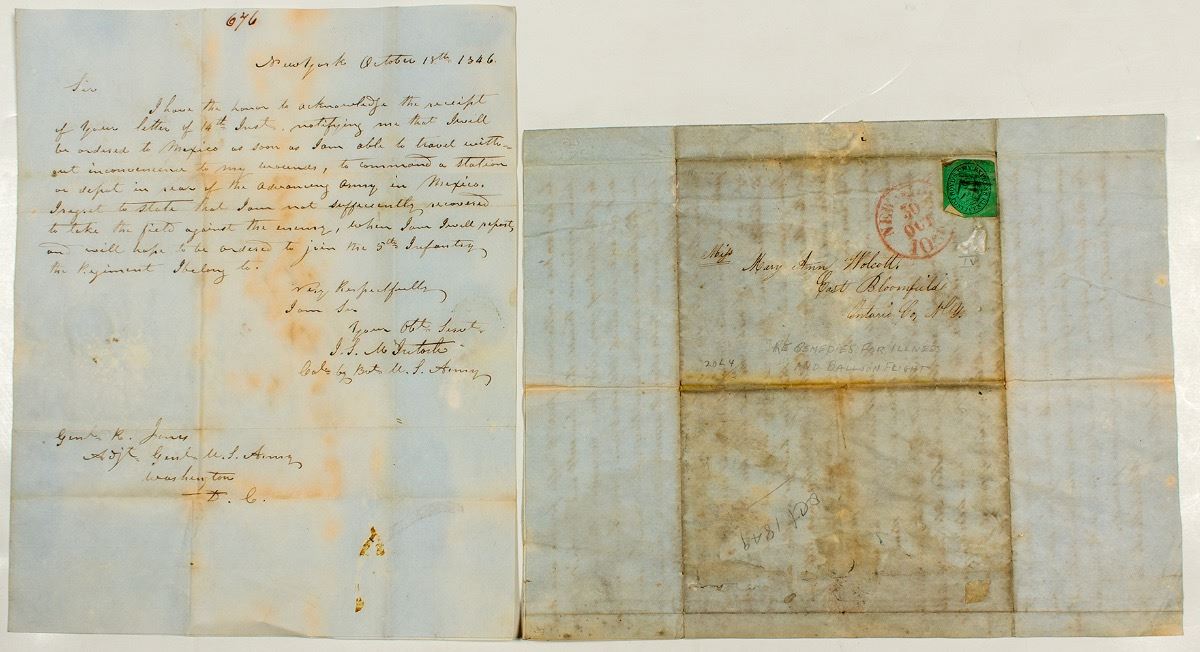 676
New York October 18th 1846.
Sir
I have the honor to acknowledge the receipt
of your letter of 14th Inst. notifying me that I will
be ordered to Mexico as soon as I am able to travel with-
out inconvenience to my wounds, to command a station
or depot in rear of the advancing Army in Mexico.
I regret to state that I am not sufficiently recovered
to take the field against the enemy, when I am I will report,
and will hope to be ordered to join the 5th Infantry
the Regiment I belong to.
Very Respectfully
I am Sir
Your Obt. Servt.
J. S. McIntosh
Col. by Bvt. U. S. Army
Genl. R. Jones
Adjt. Genl. U. S. Army
Washington
D. C.
NEW
30
OCT
10
Miss Mary Ann Wolcott
East Bloomfield
Ontario Co, N.Y.
RE REMEDIES FOR ILLNESS
AND BALLOON FLIGHT
Oct 1849